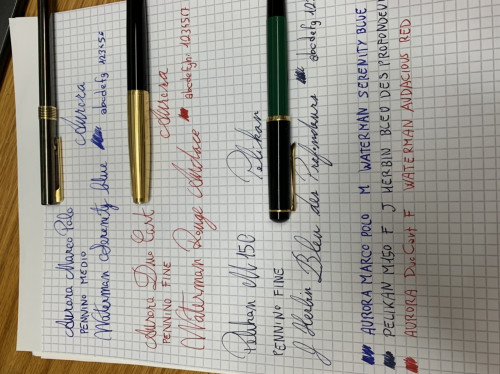 Aurora Marco Polo
PENNINO MEDIO
Waterman Serenity blue
abcdefg 123456
Aurora
Aurora Duo Cart
PENNINO FINE
Waterman Rouge Audace
abcdefghi 1234567
Aurora
Pelikan M150
PENNINO FINE
J Herbin Bleu des Profondeurs
abcdefg 123
Pelikan
AURORA MARCO POLO M WATERMAN SERENITY BLUE
PELIKAN M150 F J HERBIN BLEU DES PROFONDEUR
AURORA DuoCart F WATERMAN AUDACIOUS RED